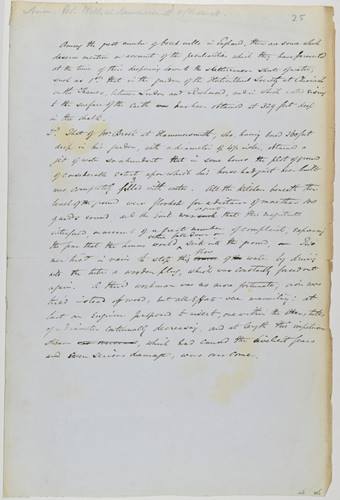 25
Among the great number of bored wells in England, there are some which
deserve mention on account of the peculiarities which they have presented
at the time of their deepening to wit the Artesian
such as 1st that in the garden of the Horticultural Society at Chiswick
on the Thames, between London and Richmond, and in which water rising
to the surface of the earth has been obtained at 329 feet deep
in the chalk.
2. That of Mr Brook at Hammersmith, who having bored 360 feet
deep in his garden, with a diameter of 4½ inches, obtained a
jet of water so abundant that in some hours the plot of ground
of considerable extent upon which his house had just been built
was completely filled with water. All the kitchens beneath the
level of the ground were flooded for a distance of more than 100
yards round and the invd was such that the magistrate
interfered on account of a great number of complaints, expressing
the fear that the houses would sink into the ground,
men tried in vain to stop this flow of water by driving
into the tube a wooden plug, which was constantly forced out
again. A third workman was no more fortunate; iron was
tried instead of wood, but all effort was unavailing: at
last an Engineer proposed to insert, one within the other, tubes
of a diameter continually decreasing, and at length this impetuous
stream, which had caused the liveliest fears
and even serious damage, was overcome.